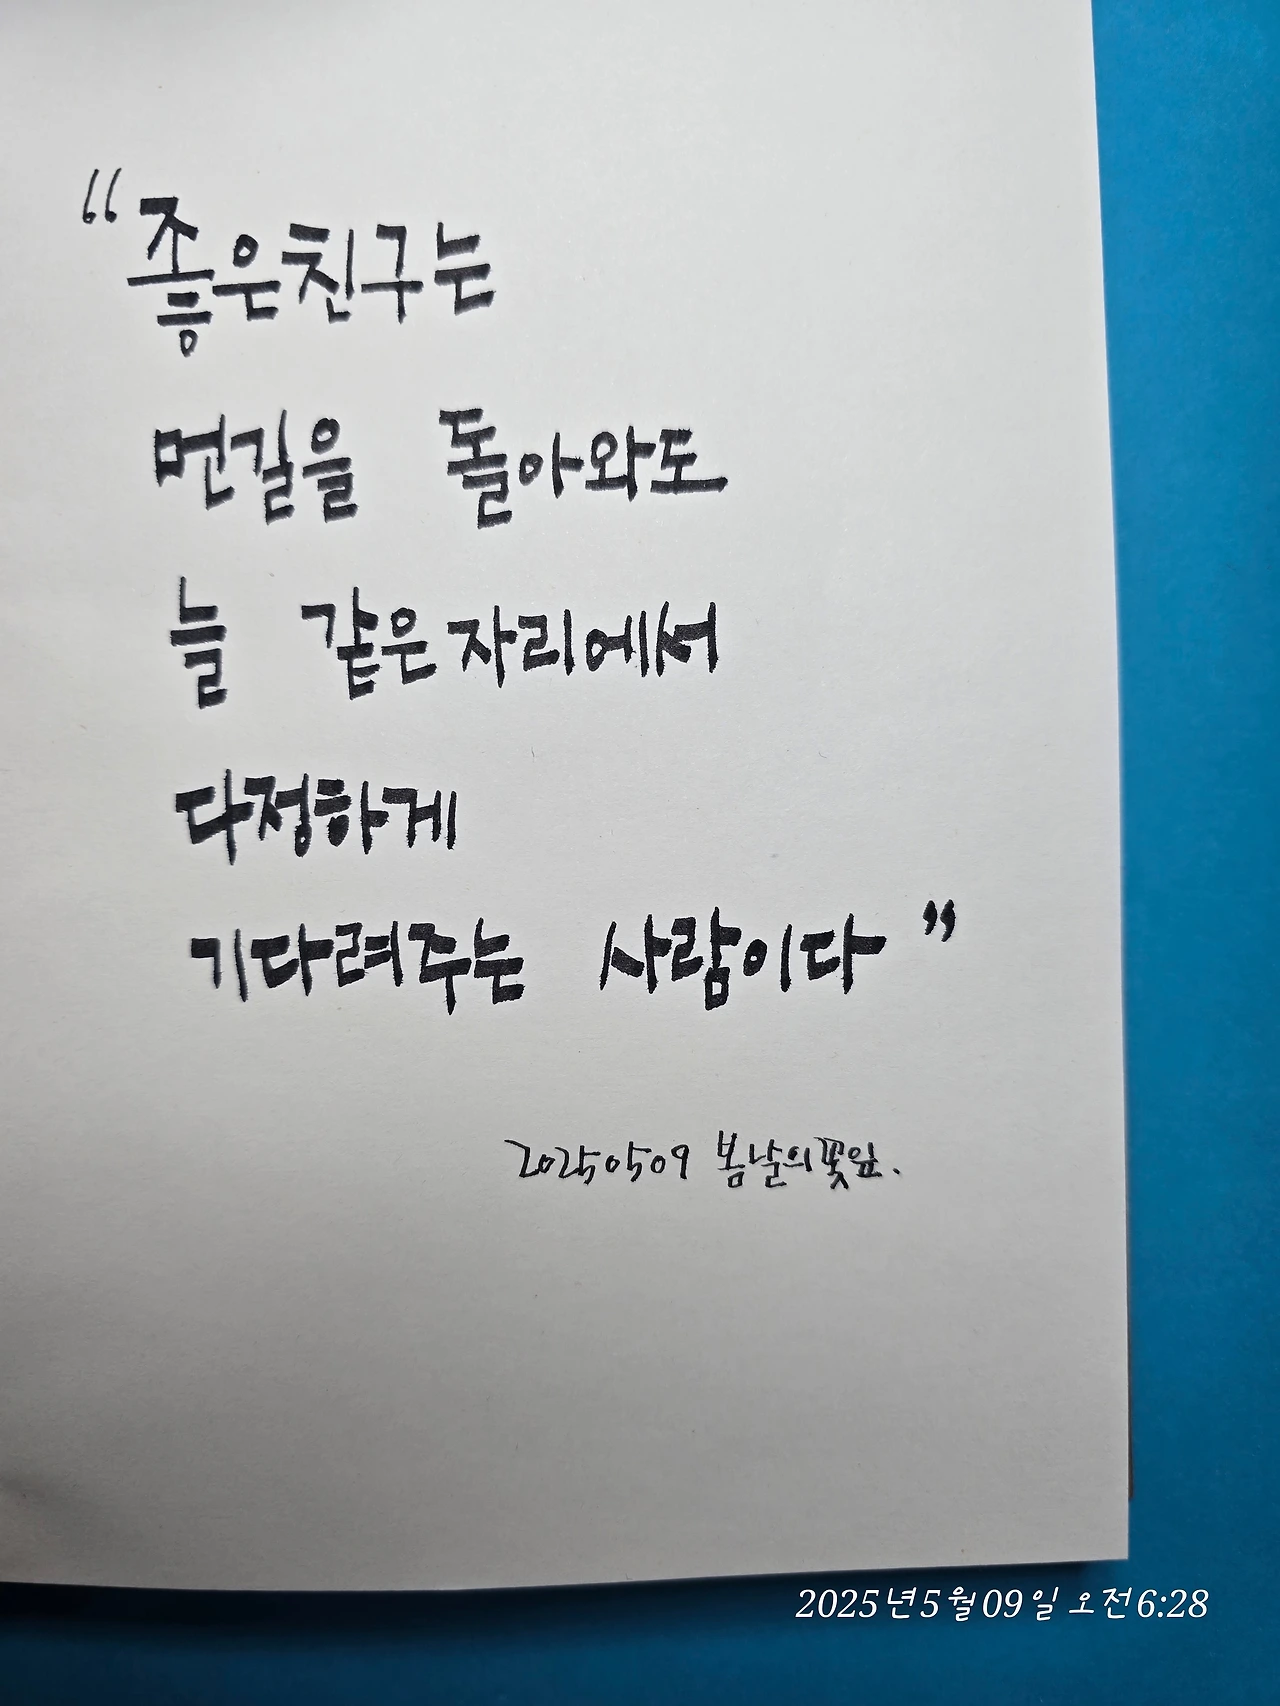 “좋은친구는
먼길을 돌아와도
늘 같은자리에서
다정하게
기다려주는 사람이다”
20250509 봄날의꽃잎.
2025년5월09일 오전6:28